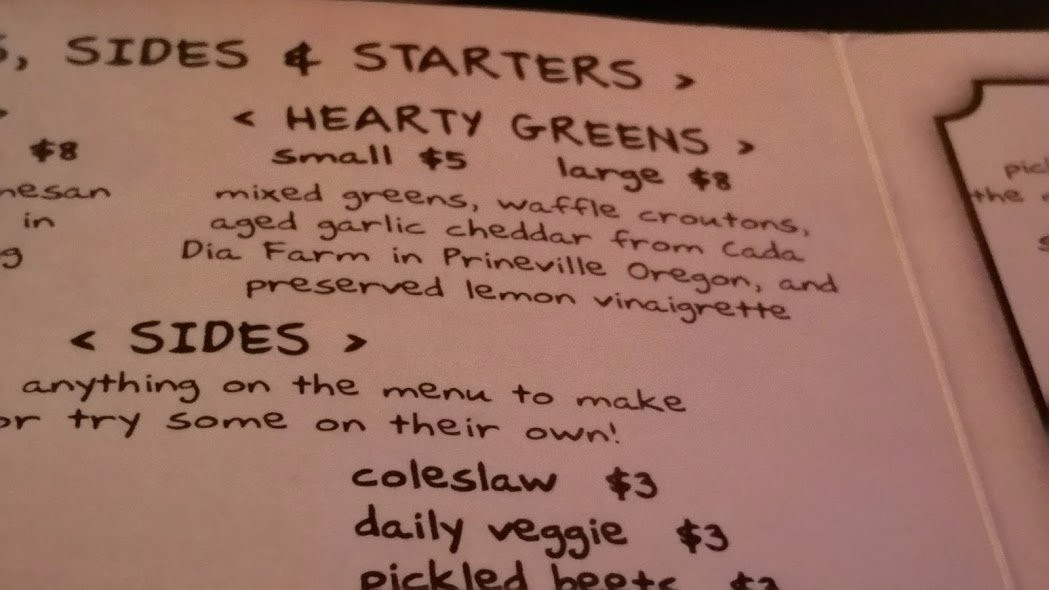 , SIDES & STARTERS >
< HEARTY GREENS >
$8
small $5 large $8
mixed greens, waffle croutons,
in
aged garlic cheddar from Cada
Dia Farm in Prineville Oregon, and
preserved lemon vinaigrette
< SIDES >
anything on the menu to make
or try some on their own!
coleslaw $3
daily veggie $3
pickled beets
the